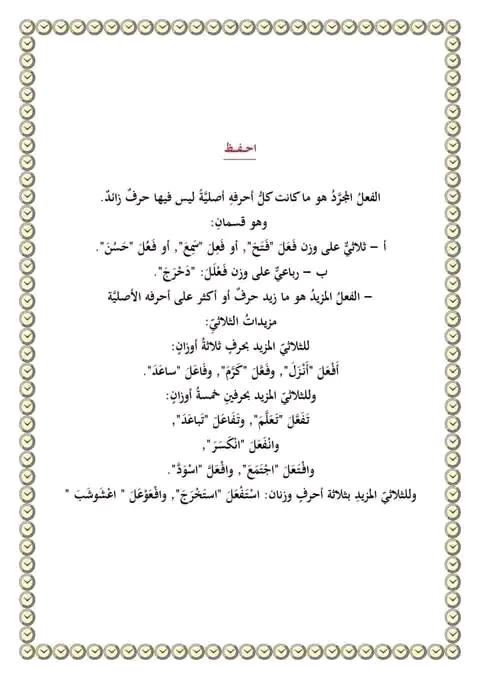 احـفـظ
الفعلُ المجرَّدُ هو ما كانت كلُّ أحرفهِ أصليَّةً ليس فيها حرفٌ زائدٌ.
وهو قسمانِ:
أ – ثلاثيٌّ على وزن فَعَلَ "فَتَحَ", أو فَعِلَ "سَمِعَ", أو فَعُلَ "حَسُنَ".
ب – رباعيٌّ على وزن فَعْلَلَ: "دَحْرَجَ".
– الفعلُ المزيدُ هو ما زيد حرفٌ أو أكثر على أحرفه الأصليَّة
مزيداتُ الثلاثيِّ:
للثلاثيّ المزيد بحرفٍ ثلاثةُ أوزانٍ:
أَفْعَلَ "أَنْزَلَ", وفَعَّلَ "كَرَّمَ", وفَاعَلَ "ساعَدَ".
وللثلاثيّ المزيد بحرفينِ خمسةُ أوزانٍ:
تَفَعَّلَ "تَعَلَّمَ", وتَفَاعَلَ "تَباعَدَ",
وانْفَعَلَ "انْكَسَرَ",
وافْتَعَلَ "اجْتَمَعَ", وافْعَلَّ "اسْوَدَّ".
وللثلاثيّ المزيدِ بثلاثة أحرفٍ وزنان: اسْتَفْعَلَ "استَخْرَجَ", وافْعَوْعَلَ " اعْشَوشَبَ "